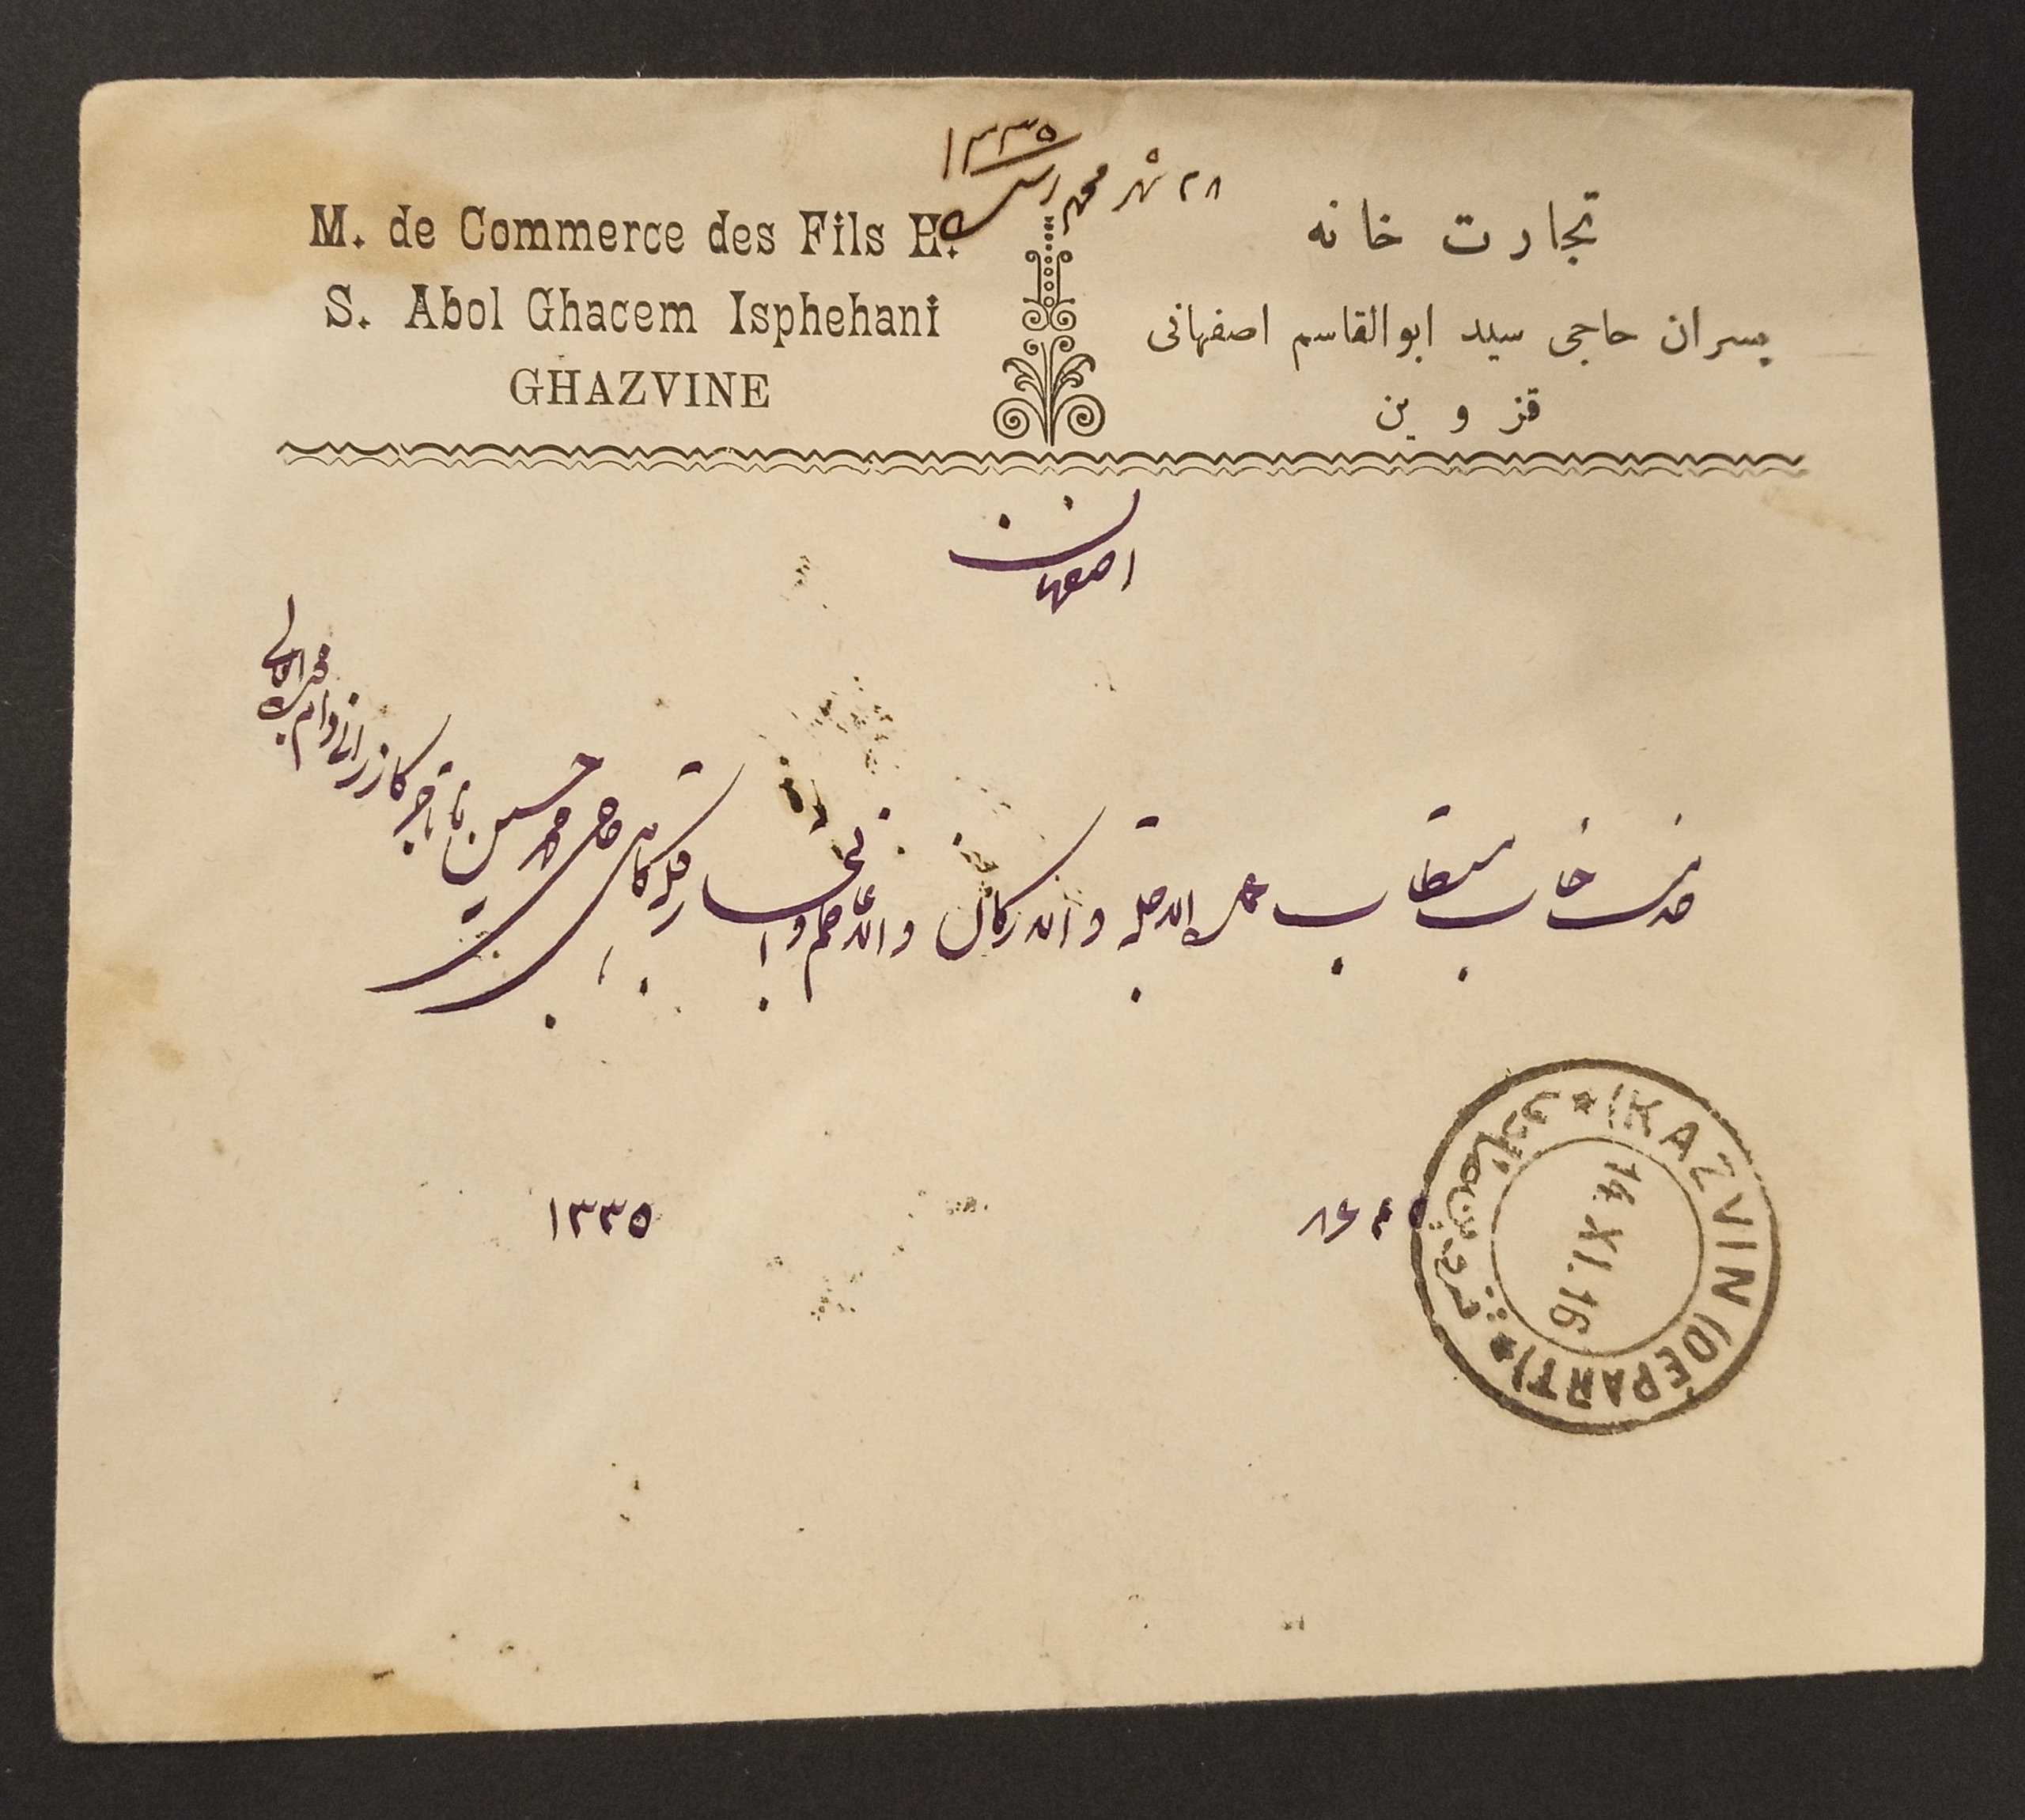 ۲۸ شهر محرم رسید ۱۳۳۵
M. de Commerce des Fils H.
S. Abol Ghacem Isphehani
GHAZVINE
تجارت خانه
پسران حاجی سید ابوالقاسم اصفهانی
قز و ین
اصفهان
خدمت جناب مستطاب عمدة و التجار حاجی محمد حسین تاجر کازرانی دام
۱۳۳۵
KAZVIN (DÉPART)
14.XI.16